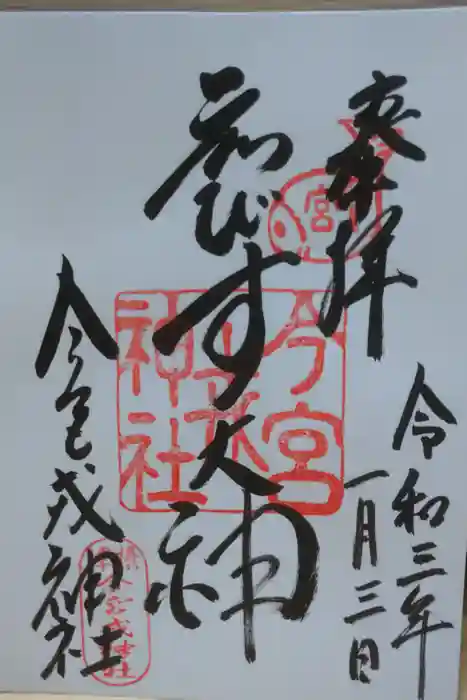 奉拝
令和三年
一月三日
ゑびす大神
今宮戎神社
今宮
戎
神社
宮